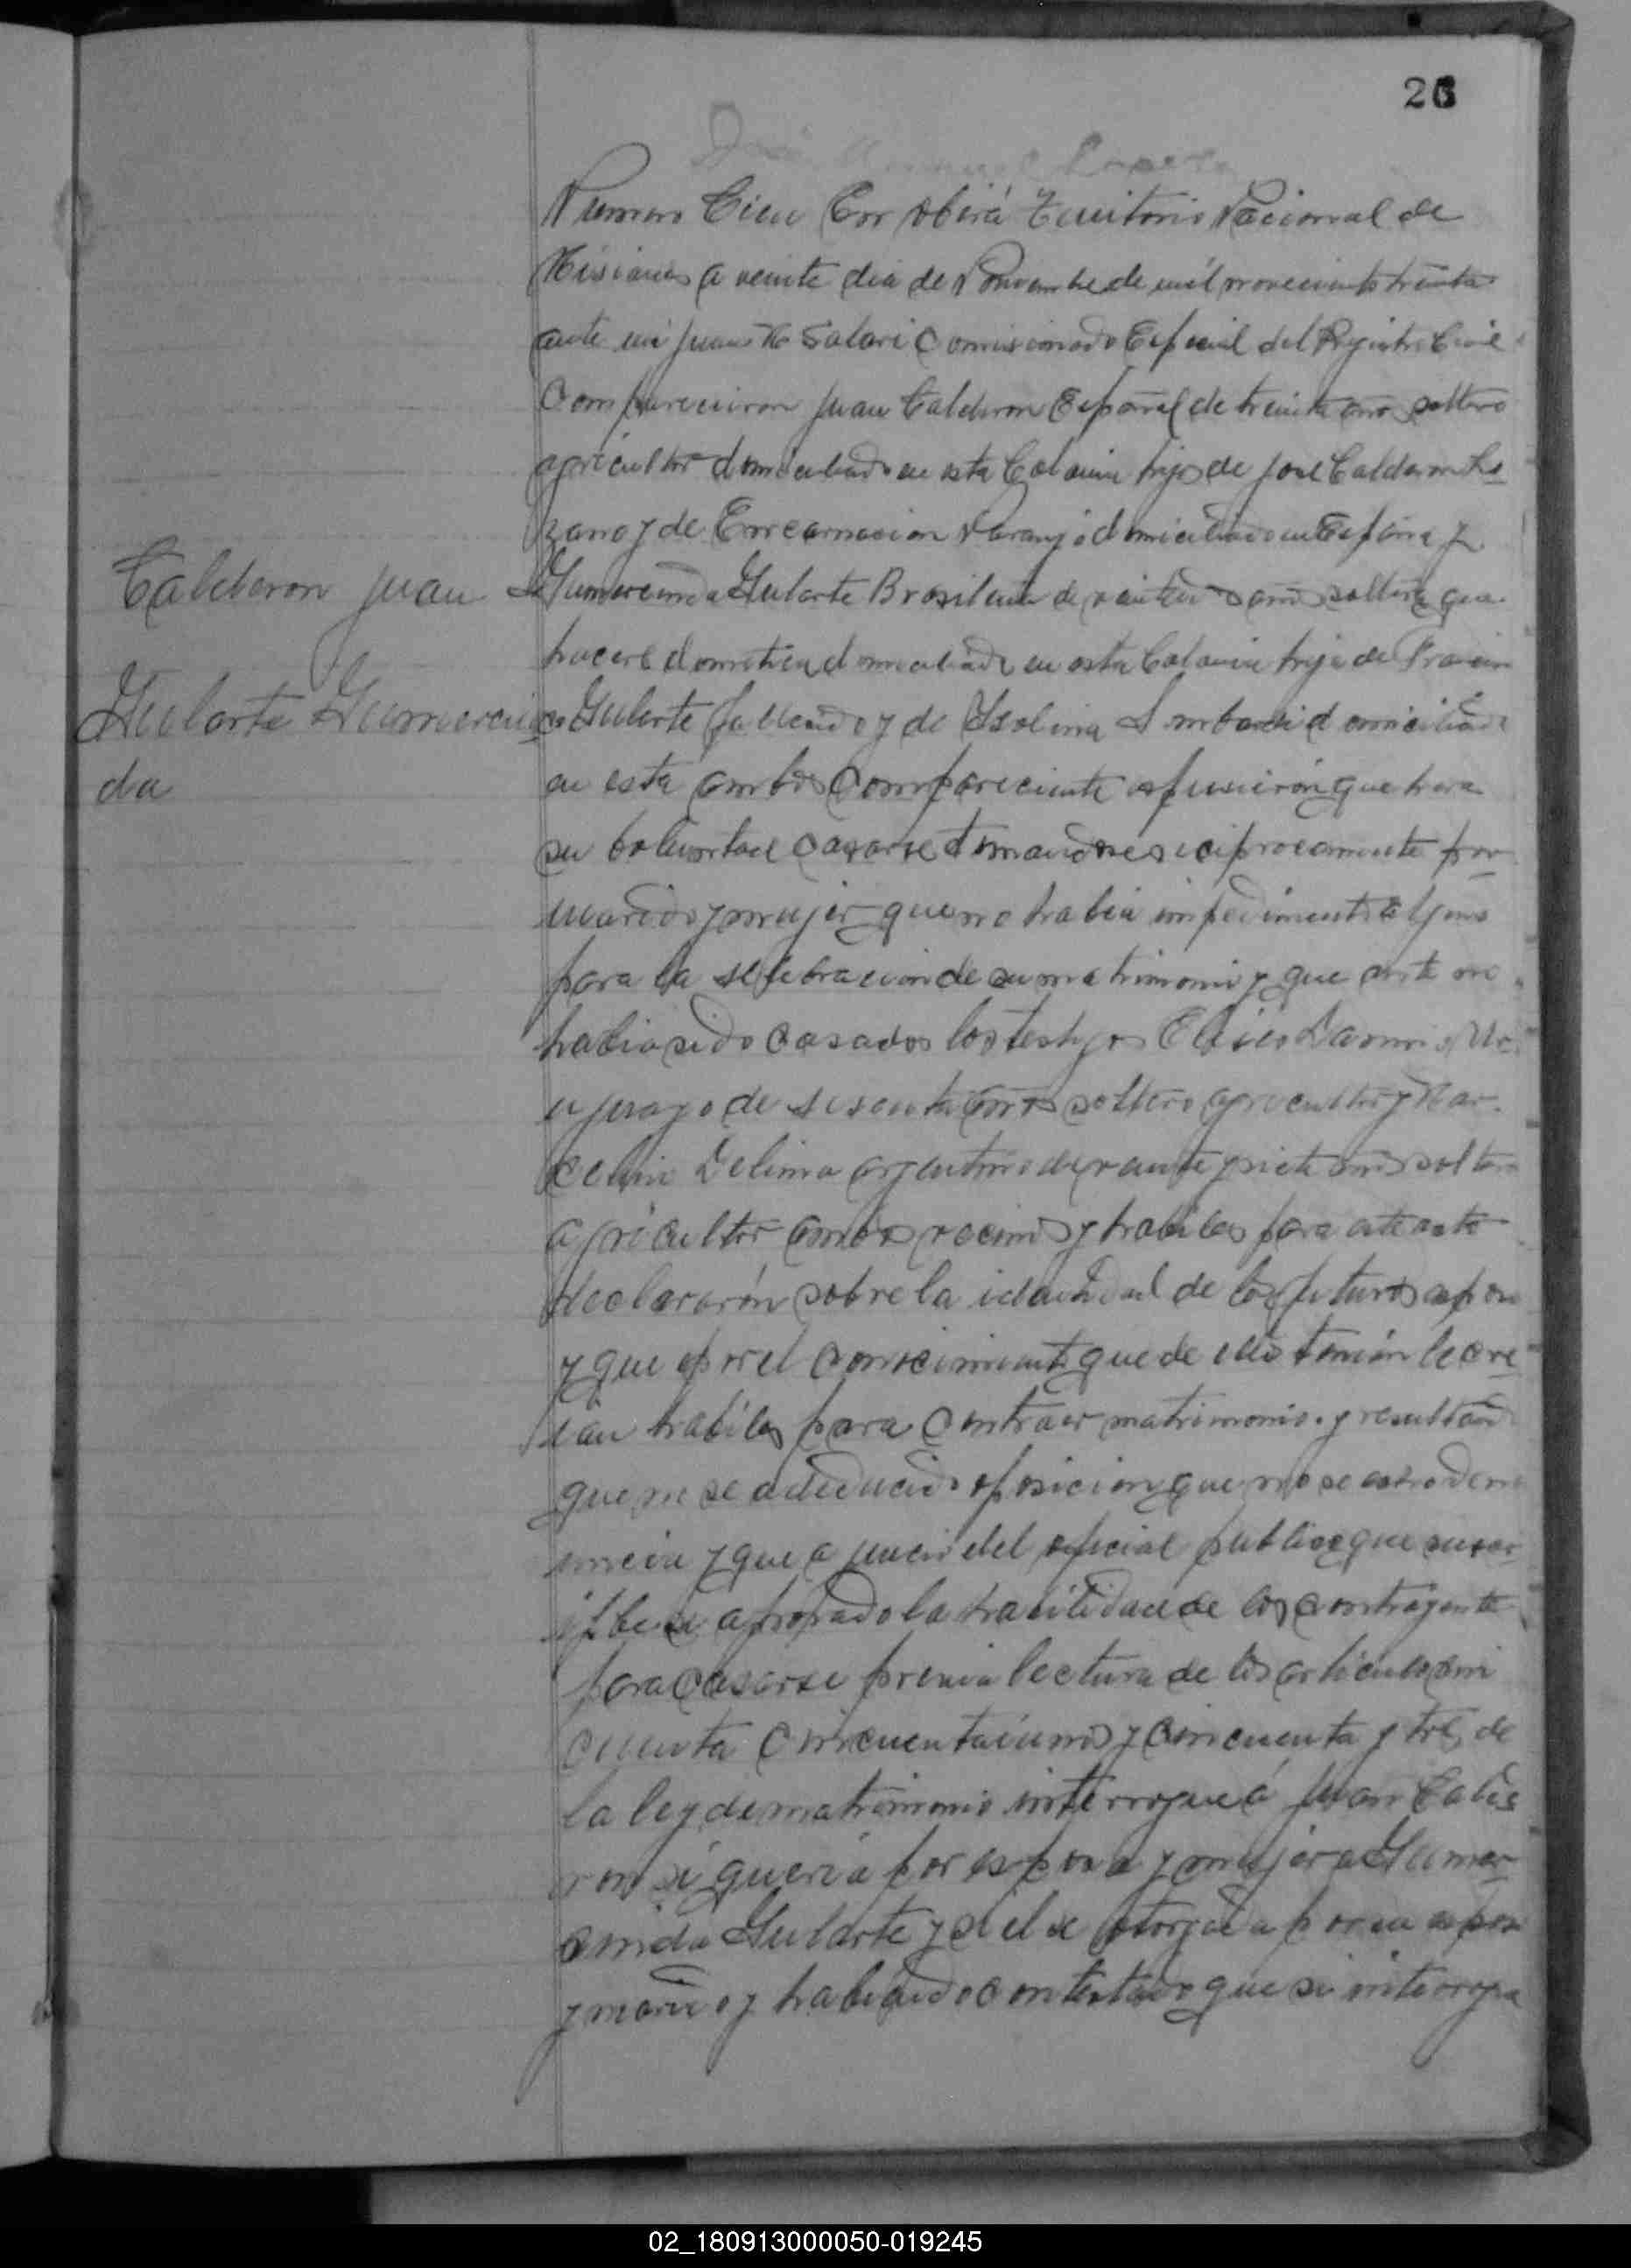 26
Numero Cien En Oberá Territorio Nacional de
Misiones a veinte dia de Noviembre de mil novecientos treinta
ante mi Juan Salari Comisionado Especial del Rejistro Civil
Comparecieron Juan Calderon Español de treinta años soltero
agricultor domiciliado en esta Colonia hijo de Jose Calderon Lo
zano y de Encarnacion Naranjo domiciliado en España y
Calderon Juan
Gumercinda Gularte Brasileña de años soltera que
haceres domestica domiciliada en esta Colonia hija de Francis
Gularte Gumercin
da
co Gularte fallecido y de Isolina domiciliada
en esta ambos Compareciente espusieron que hera
su boluntad casarse tomandose reciprocamente por
marido y mujer que no habia impedimento alguno
para la selebracion de su matrimonio y que ante no
habia sido casados los testigos Eliseo Ur
uguayo de sesenta años soltero agricultor y Mar
celino Delima argentino de veinte y siete años soltero
agricultor ambos vecinos y habiles para este acto
declararón sobre la identidad de los futuros espos
y que por el conocimiento que de ellos tenian le cre
ian habiles para contraer matrimonio y resultand
que no se a deducido oposicion que no se de
nuncia y que a juicio del oficial publico que suscr
ibe se a probado la habilidad de los contrayente
para casarse previa lectura de los articulos cin
cuenta cincuentaiuno y cincuenta y tres de
la ley de matrimonio interrogue á Juan Calde
ron si queria por esposa y mujer a Gumer
cinda Gularte y si el se otorgaba por su espos
y marido y habiendo contestado que si interrogue
02_180913000050-019245